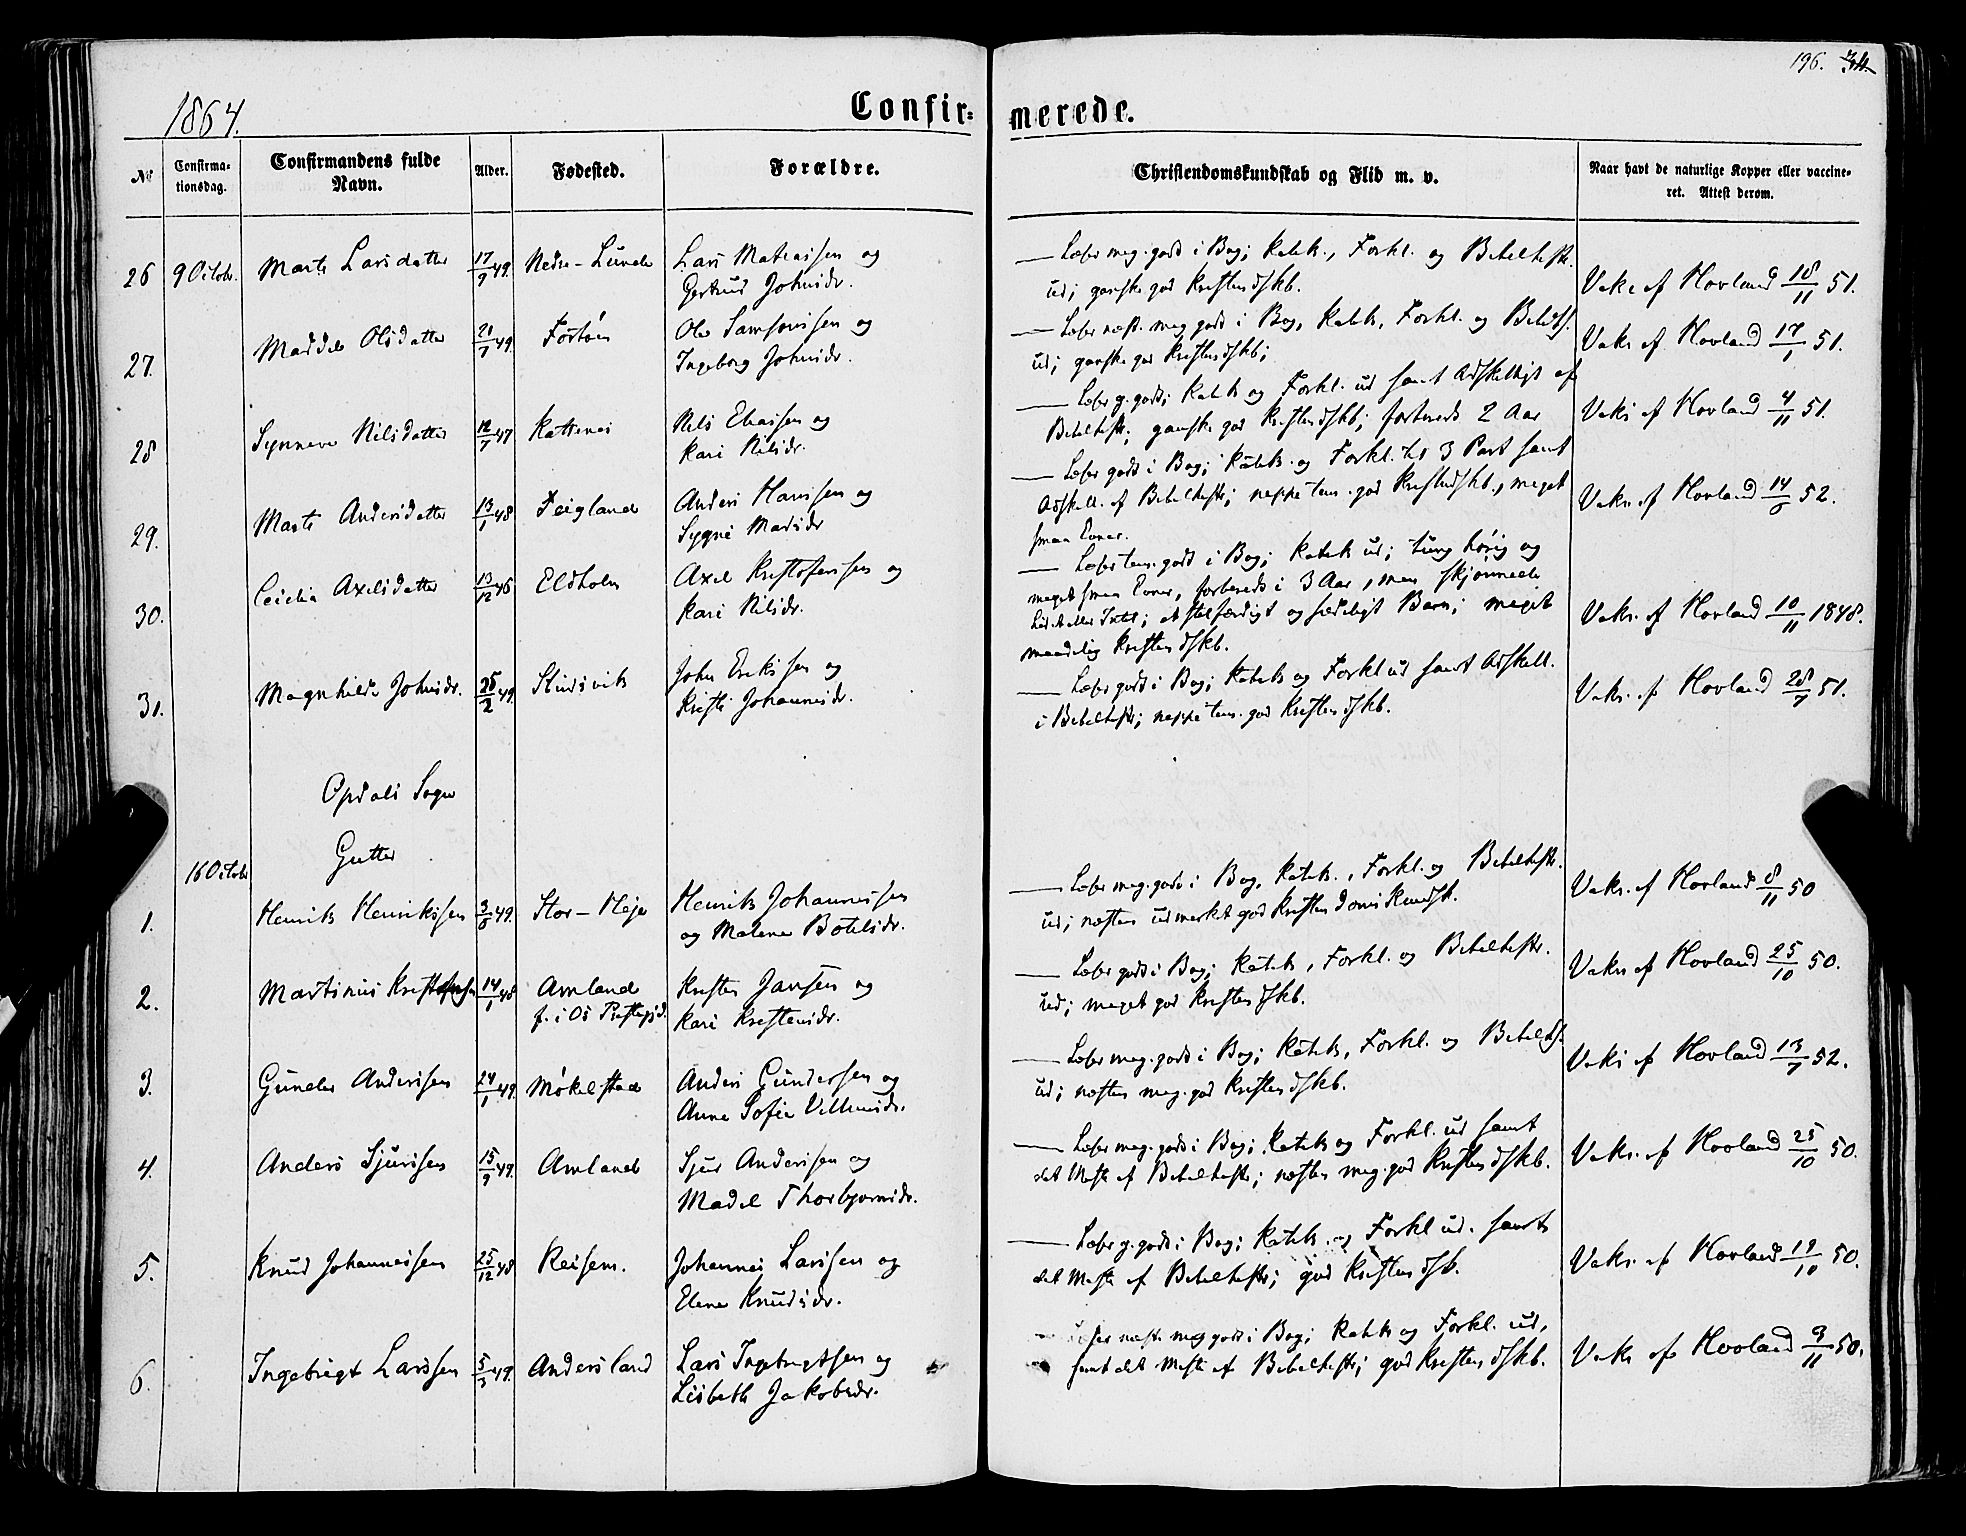 196. 34.
1864.
Confir= merede.
No
Confirma-
tionsdag.
Confirmandens fulde
Navn.
Alder.
Fødested.
Forældre.
Christendomskundskab og Flid m. v.
Naar havt de naturlige Kopper eller vaccine-
ret. Attest derom.
26 9 Octobr. Marte Larsdatter 17/9 49. Nedre-Lunde Lars Matiassen og
Gertrud Johnsdr.
— Læser meg. godt i Bog; Katek., Forkl. og Bibelhist.
ud; ganske god Kristendskb.
Vakc af Hovland 18/11 51.
27. Maddele Olsdatter 21/7 49. Ole Samsonsen og
Ingeborg Johnsdr.
— Læser næst. meg. godt i Bog, Katek, Forkl. og Bibelh.
ud; ganske god Kristendskb;
Vaks af Hovland 17/1 51.
28 Synneve Nilsdatter 12/7 47 Kattenes Nils Eliassen og
Kari Nilsdr.
— Læser g. godt; Katek og Forkl. ud samt Adskelligt af
Bibelhist; ganske god Kristendskb; forbereds 2 Aar
Vaks af Hovland 4/11 51.
29. Marte Andersdatter 13/1 48 Teigland Anders Hansen og
Sygni Madsdr
— Læser godt i Bog; Katek. og Forkl. til 3 Part samt
Adskell. af Bibelhist; neppe tem. god Kristendskb., meget
smaa Evner.
Vaks af Hovland 14/6 52.
30. Cicilia Axelsdatter 13/12 46 Eldholm Axel Kristofersen og
Kari Nilsdr.
— Læser tem. godt i Bog; Katek ud; tung hørig og
meget smaa Evner, forbereds i 3 Aar, men skjønnede
lidet eller Intet; et stilfærdigt og sædeligt Barn; meget
maadelig Kristendskb.
Vaks. af Hovland 10/11 1848.
31. Magnhilde Johnsdr. 25/2 49. Stusvik John Eriksen og
Kristi Johannesdr.
— Læser godt i Bog; Katek og Forkl ud samt Adskell.
i Bibelhist; neppe tem. god Kristendskb.
Vaks. af Hovland 28/7 51.
Opdals Sogn
Gutter
16 Octobr
1. Henrik Henriksen 3/8 49. Stor-Heje Henrik Johannessen
og Malene Botelsdr.
— Læser meg. godt i Bog, Katek., Forkl. og Bibelhist.
ud; næsten udmerket god Kristendoms Kundsk.
Vaks. af Hovland 8/11 50
2. Martinus Kristensen Amland
f. i Os Prestegjd. Kristen Jansen og
Kari Kristensdr.
— Læser godt i Bog; Katek, Forkl. og Bibelhistr.
ud; meget god Kristendskb.
Vaks af Hovland 25/10 50.
3. Gunder Andersen 24/1 49. Møkelstad Anders Gundersen og
Anne Sofie Villumsdr.
— Læser meg. godt i Bog; Katek, Forkl. og Bibelhs.
ud; næsten meg. god Kristendskb.
Vaks af Hovland 13/7 52.
4. Anders Sjursen 15/9 49. Amland Sjur Andersen og
Madel Thorbjornsdr.
— Læser meg. godt i Bog; Katek og Forkl. ud samt
det Meste af Bibelhist; næsten meg. god Kristendskb.
Vaks. af Hovland 25/10 50.
5. Knud Johannessen 25/12 48 Reisem. Johannes Larssen og
Elene Knudsdr.
— Læser g. godt i Bog; Katek. og Forkl ud. samt
det Meste af Bibelhist; god Kristendsk.
Vaks. af Hovland 19/10 50.
6. Ingebrigt Larssen 49. Andersland Lars Ingebrigtsen og
Lisbeth Jakobsdr.
næst. meg godt i Bog; Katek og Forkl. ud,
samt det Meste af Bibelhist; god Kristendskb.
Vaks af Hovland 9/11 50.